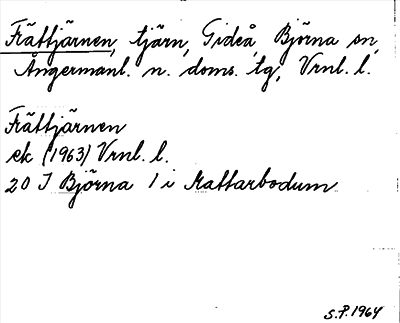 Frättjärnen, tjärn, Gideå, Björna sn,
Ångermanl. n. doms. tg, Vrnl. l.
Frättjärnen
ek (1963) Vrnl. l.
20 I Björna 1 i Mattarbodum
S.P. 1964